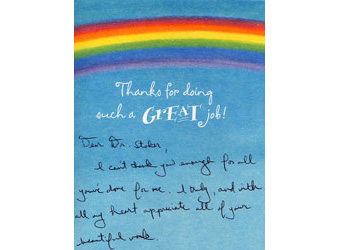 Thanks for doing
such a GREAT job!
Dear Dr. Stoker,
I can't thank you enough for all
you've done for me. I truly, and with
all my heart appreciate all of your
beautiful work.